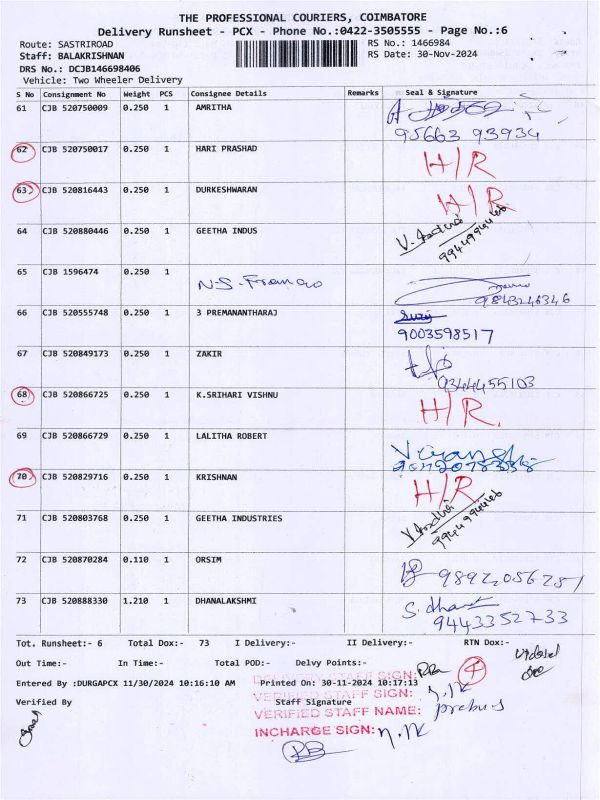 THE PROFESSIONAL COURIERS, COIMBATORE
Delivery Runsheet - PCX - Phone No.:0422-3505555 - Page No.:6
Route: SASTRIROAD RS No.: 1466984
Staff: BALAKRISHNAN RS Date: 30-Nov-2024
DRS No.: DCJB146698406
Vehicle: Two Wheeler Delivery
S No Consignment No Weight PCS Consignee Details Remarks Seal & Signature
61 CJB 520750009 0.250 1 AMRITHA
95663 93934
62 CJB 520750017 0.250 1 HARI PRASHAD H/R
63 CJB 520816443 0.250 1 DURKESHWARAN H/R
64 CJB 520880446 0.250 1 GEETHA INDUS
9944994466
65 CJB 1596474 0.250 1 N.S. Franco
9843246346
66 CJB 520555748 0.250 1 3 PREMANANTHARAJ
9003598517
67 CJB 520849173 0.250 1 ZAKIR
9344455103
68 CJB 520866725 0.250 1 K.SRIHARI VISHNU H/R
69 CJB 520866729 0.250 1 LALITHA ROBERT
70 CJB 520829716 0.250 1 KRISHNAN H/R
71 CJB 520803768 0.250 1 GEETHA INDUSTRIES
9944994466
72 CJB 520870284 0.110 1 ORSIM
9892056251
73 CJB 520888330 1.210 1 DHANALAKSHMI
9443352733
Tot. Runsheet:- 6 Total Dox:- 73 I Delivery:- II Delivery:- RTN Dox:-
Out Time:- In Time:- Total POD:- Delvy Points:-
Entered By :DURGAPCX 11/30/2024 10:16:10 AM Printed On: 30-11-2024 10:17:13
4
DELIVERY STAFF SIGN:
Verified By Staff Signature
VERIFIED STAFF SIGN:
VERIFIED STAFF NAME:
INCHARGE SIGN: